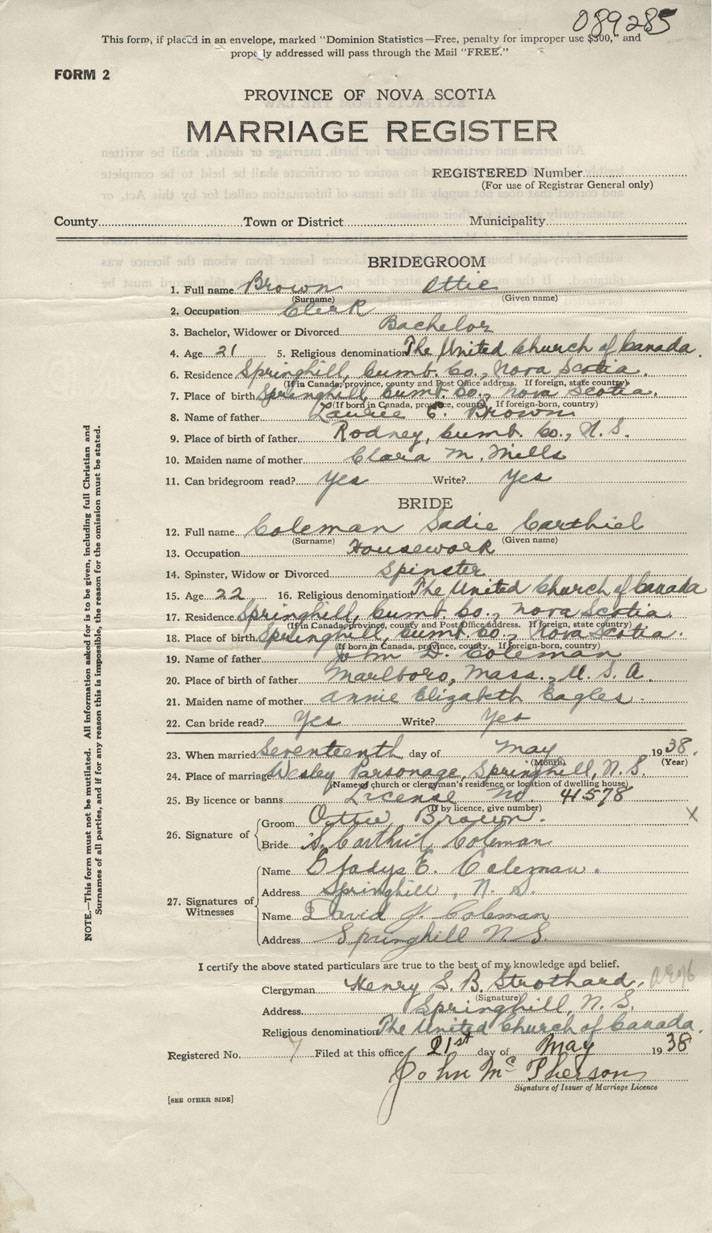 089285
This form, if placed in an envelope, marked "Dominion Statistics—Free, penalty for improper use $300," and
properly addressed will pass through the Mail "FREE."
FORM 2
PROVINCE OF NOVA SCOTIA
MARRIAGE REGISTER
REGISTERED Number
(For use of Registrar General only)
County Town or District Municipality
BRIDEGROOM
1. Full name Brown Ottie
(Surname) (Given name)
2. Occupation Clerk
3. Bachelor, Widower or Divorced Bachelor
4. Age 21 5. Religious denomination The United Church of Canada.
6. Residence Springhill, Cumb. Co., Nova Scotia.
(If in Canada, province, county and Post Office address. If foreign, state country)
7. Place of birth Springhill, Cumb. Co., Nova Scotia.
(If born in Canada, province, county, If foreign-born, country)
8. Name of father Laurie E. Brown
9. Place of birth of father Rodney, Cumb. Co., N. S.
10. Maiden name of mother Clara M. Mills
11. Can bridegroom read? Yes Write? Yes
BRIDE
12. Full name Coleman Sadie Carthiel
(Surname) (Given name)
13. Occupation Housework
14. Spinster, Widow or Divorced Spinster
15. Age 22 16. Religious denomination The United Church of Canada
17. Residence Springhill, Cumb. Co., Nova Scotia.
(If in Canada, province, county and Post Office address. If foreign, state country)
18. Place of birth Springhill, Cumb. Co., Nova Scotia.
(If born in Canada, province, county, If foreign-born, country)
19. Name of father John D. Coleman
20. Place of birth of father Marlboro, Mass., U. S. A.
21. Maiden name of mother Annie Elizabeth Eagles.
22. Can bride read? Yes Write? Yes
23. When married Seventeenth day of May 1938.
(Month) (Year)
24. Place of marriage Wesley Parsonage, Springhill, N. S.
(Name of church or clergyman's residence or location of dwelling house)
25. By licence or banns License No 41578
(If by licence, give number)
26. Signature of
Groom Ottie Brown. X
Bride S. Carthiel Coleman
27. Signatures of Witnesses
Name Gladys E. Coleman.
Address Springhill, N. S.
Name David J. Coleman
Address Springhill N.S.
I certify the above stated particulars are true to the best of my knowledge and belief.
Clergyman Henry S. B. Strothard,
(Signature)
Address Springhill, N. S.
Religious denomination The United Church of Canada.
Registered No. 7 Filed at this office 21st day of May 1938
John McPherson
Signature of Issuer of Marriage Licence
[SEE OTHER SIDE]
NOTE.—This form must not be mutilated. All information asked for is to be given, including full Christian and
Surnames of all parties, and if for any reason this is impossible, the reason for the omission must be stated.